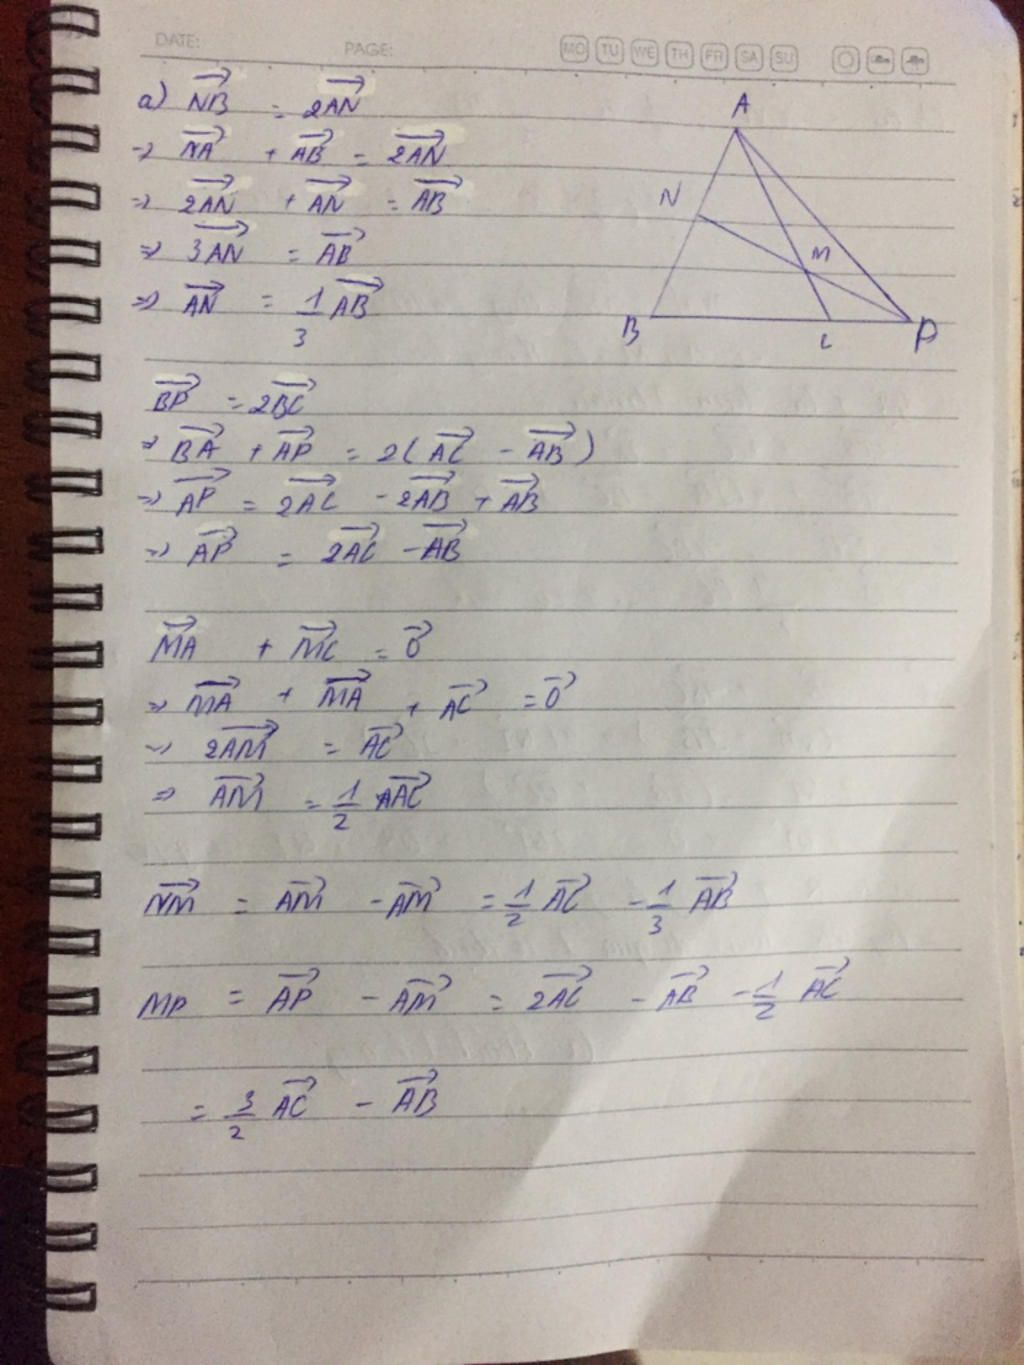 DATE: PAGE: MO TU WE TH FR SA SU
a) NB = 2AN
=> NA + AB = 2AN
=> 2AN + AN = AB
=> 3AN = AB
=> AN = 1/3 AB
A
N
M
B
C
P
BP = 2BC
=> BA + AP = 2( AC - AB )
=> AP = 2AC - 2AB + AB
=> AP = 2AC - AB
MA + MC = 0
=> MA + MA + AC = 0
=> 2AM = AC
=> AM = 1/2 AAC
NM = AM - AM = 1/2 AC - 1/3 AB
MP = AP - AM = 2AC - AB - 1/2 AC
= 3/2 AC - AB